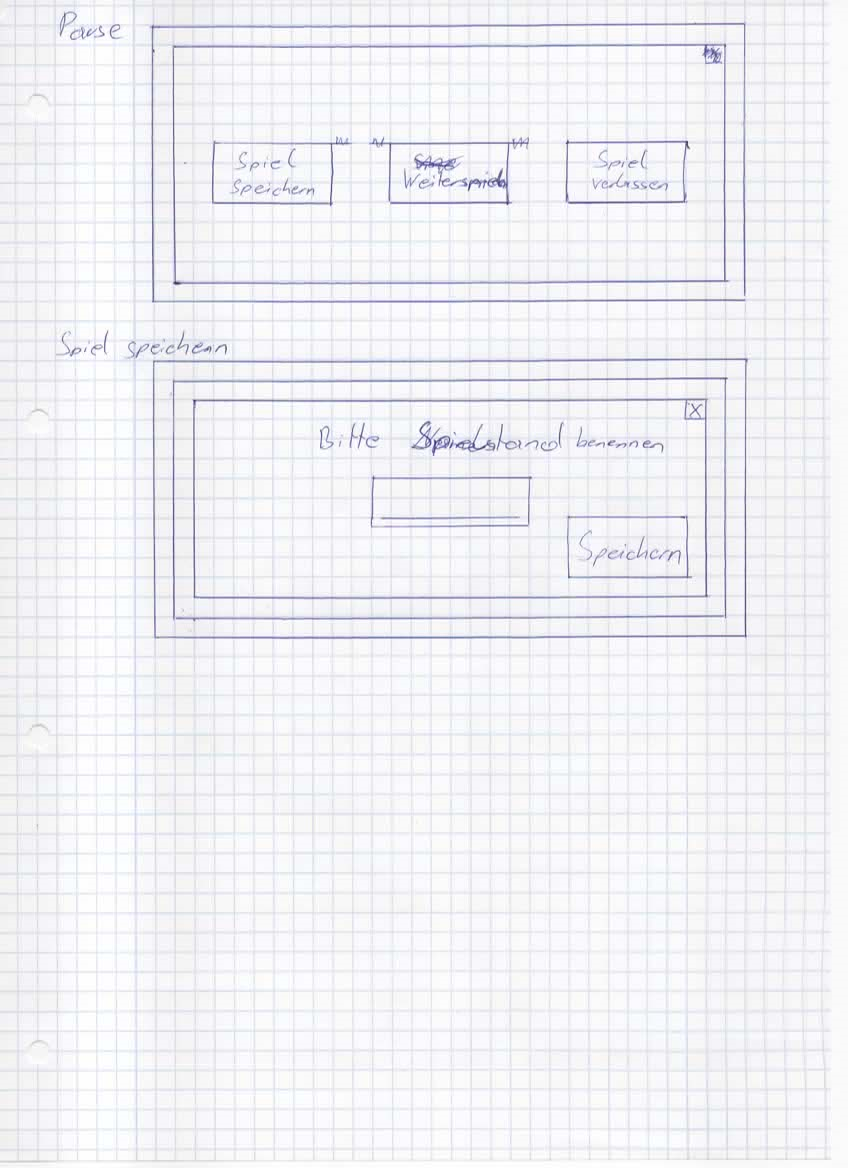 Pause
Spiel
speichern
Weiterspielen
Spiel
verlassen
Spiel speichern
X
Bitte Spielstand benennen
Speichern